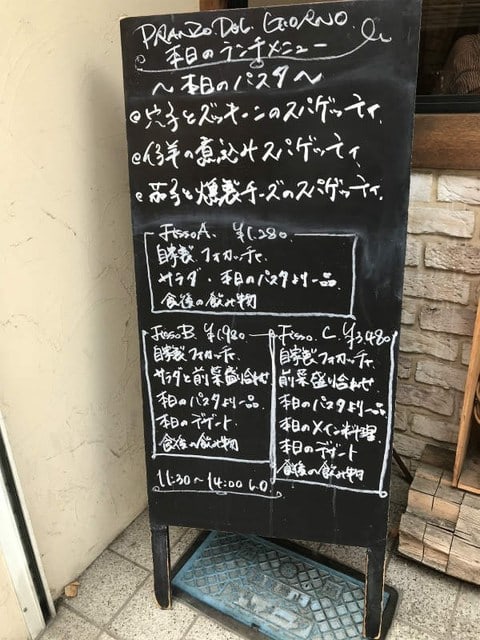 PRANZO DEL GIORNO.
本日のランチメニュー
～本日のパスタ～
穴子とズッキーニのスパゲッティ
仔羊の煮込みスパゲッティ
茄子と燻製チーズのスパゲッティ
Fisso A. ¥1,280.
自家製フォカッチャ
サラダ・本日のパスタより一品
食後の飲み物
Fisso B. ¥1,980
自家製フォカッチャ
サラダと前菜盛り合わせ
本日のパスタより一品
本日のデザート
食後の飲み物
Fisso. C. ¥3,480
自家製フォカッチャ
前菜盛り合わせ
本日のパスタより一品
本日のメイン料理
本日のデザート
食後の飲み物
11:30～14:00 L.O